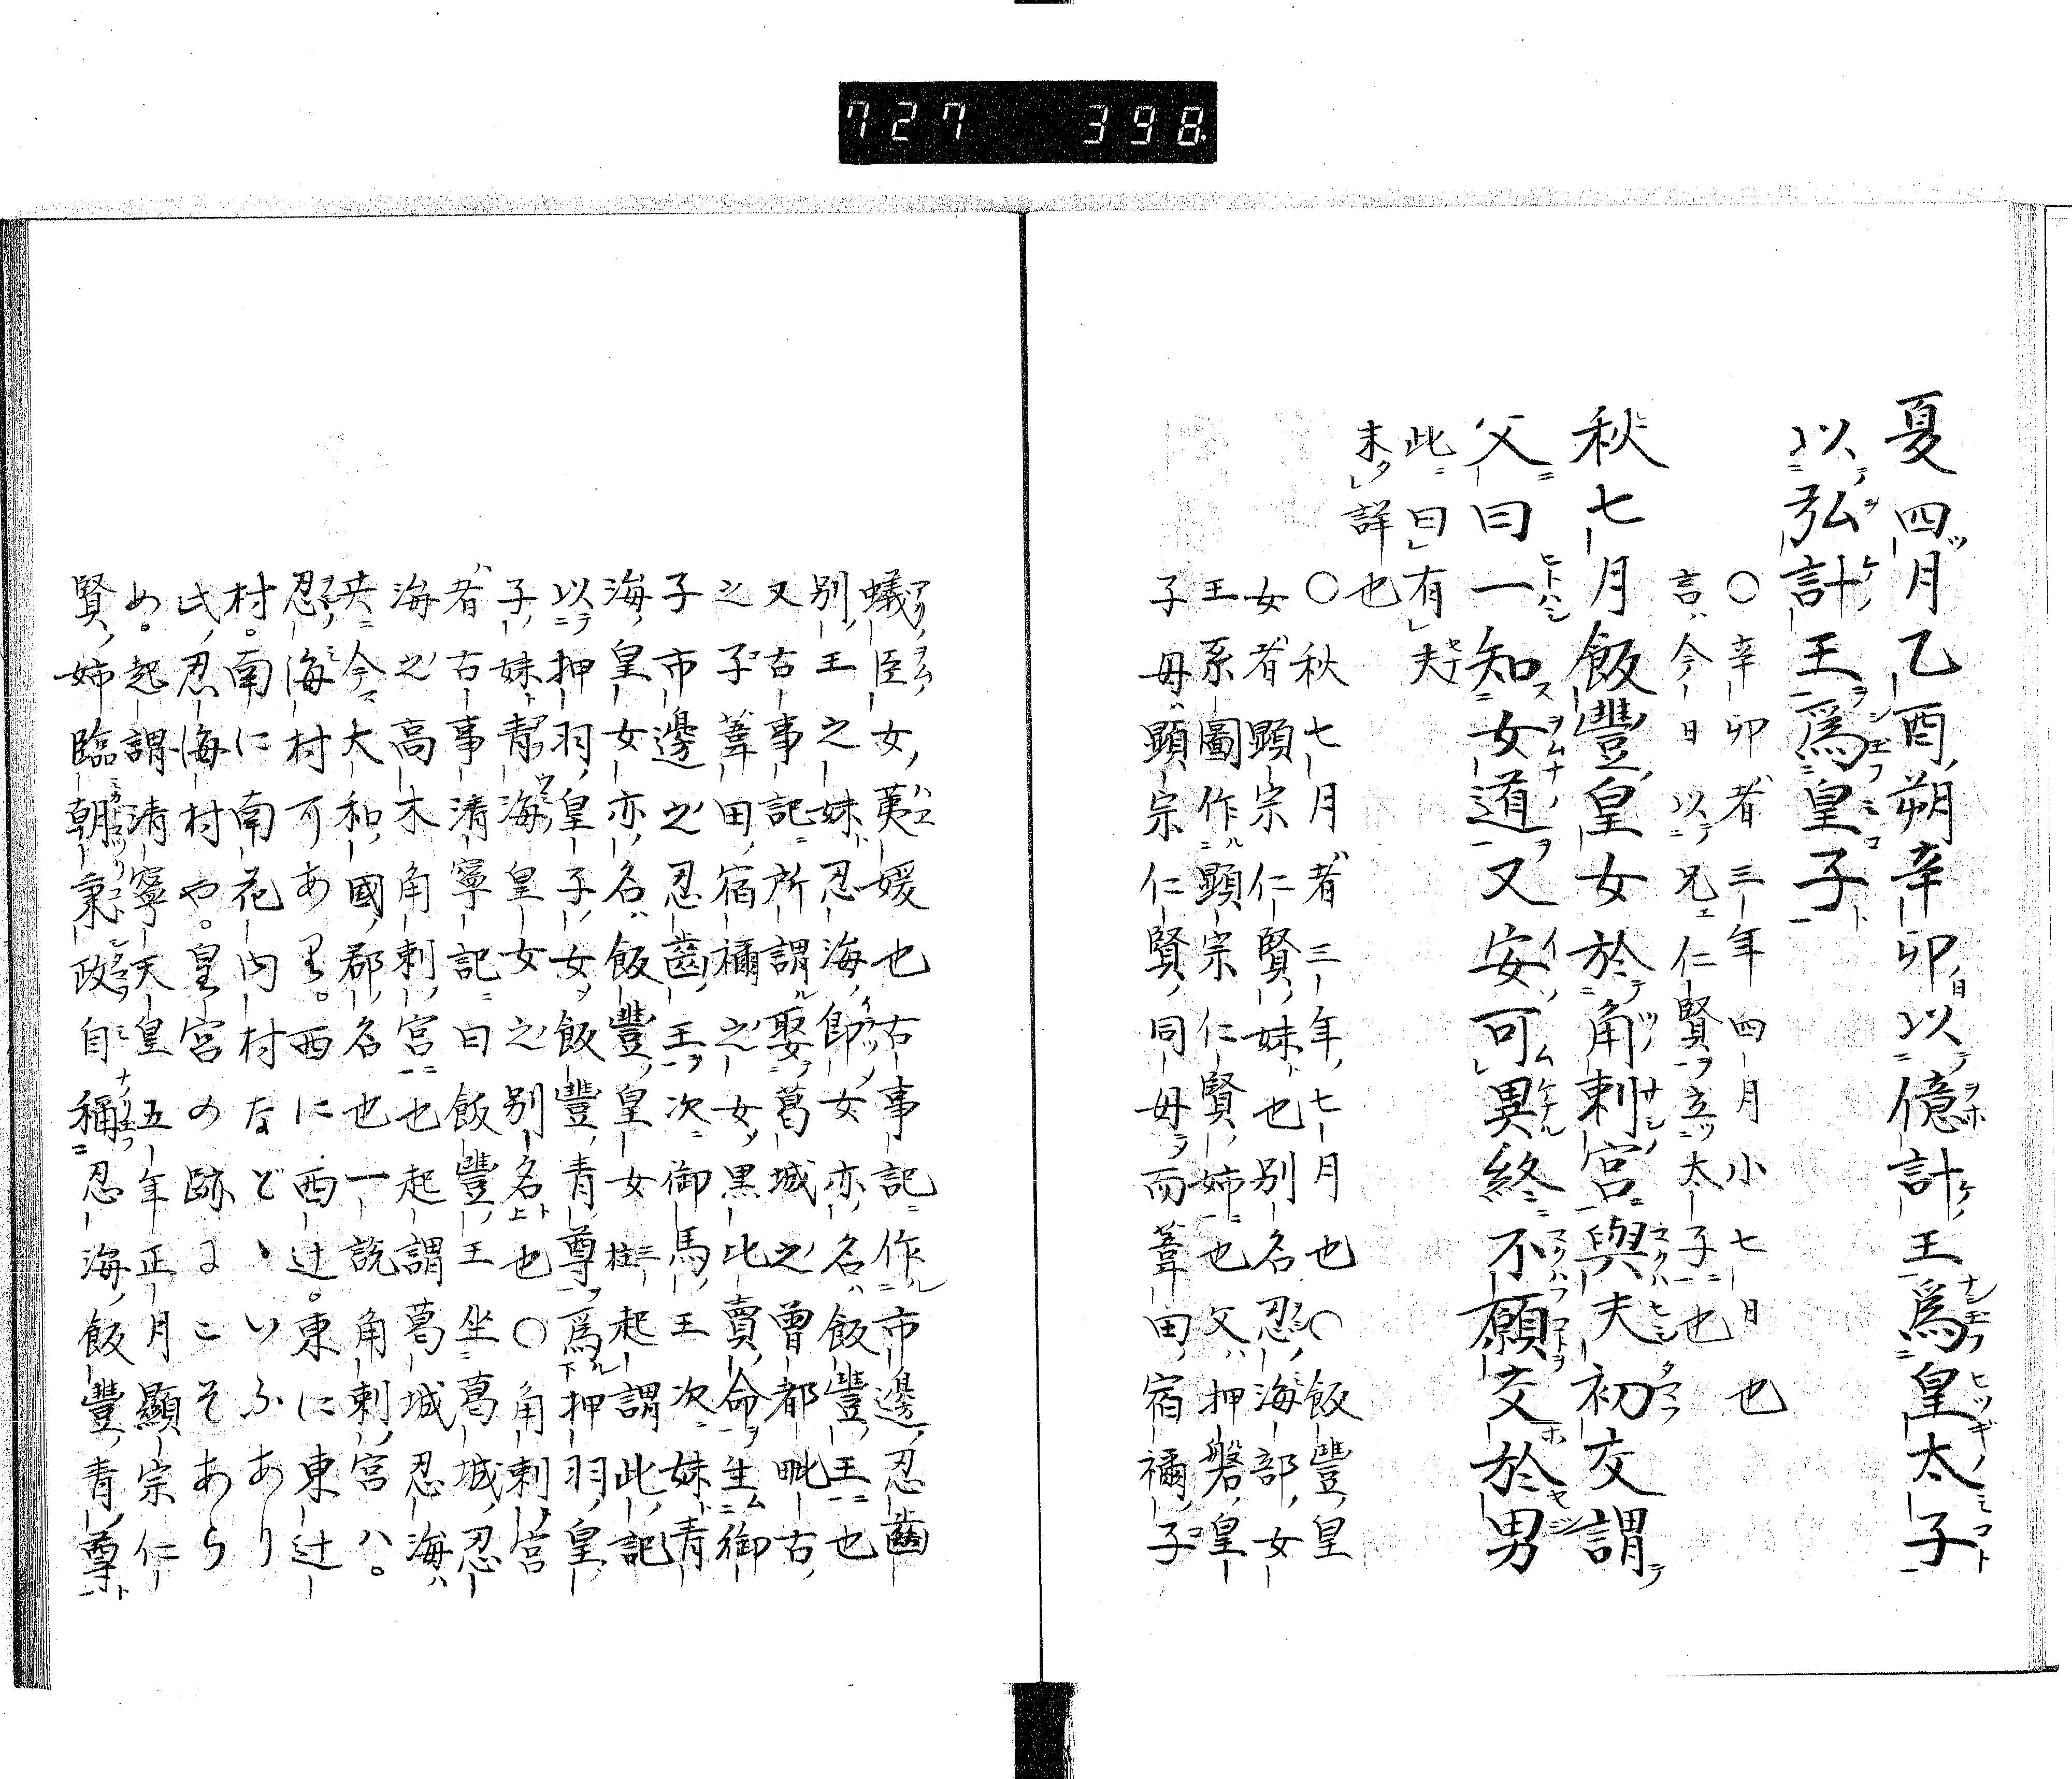 727 398
夏四月乙酉朔辛卯以億計王爲皇太子
以弘計王爲皇子
○辛卯者三年四月小七日也
言今日以兄仁賢立太子也
秋七月飯豐皇女於角刺宮與夫初交謂
父曰一知女道又安可異終不願交於男
此曰有夫
未詳也
○秋七月者三年七月也○飯豐皇
女者顯宗仁賢妹也別名忍海部女
王系圖作顯宗仁賢姉也父押磐皇
子母顯宗仁賢同母而葦田宿禰子
蟻臣女荑媛也古事記作市邊忍齒
別王之妹忍海郎女亦名飯豐王也
又古事記所謂娶葛城之曾都毗古
之子葦田宿禰之女黒比賣命生御
子市邊之忍齒王次御馬王次妹青
海皇女亦名飯豐皇女三柱起謂此記
以押羽皇子女飯豐青尊爲押羽皇
子妹青海皇女之別名也○角刺宮
者古事清寧記曰飯豐王坐葛城忍
海之高木角刺宮也起謂葛城忍海
共今大和國郡名也一説角刺宮ハ。
忍海村可あり。西に西辻。東に東辻
村。南に南花内村などゝいふあり
氏忍海村や。皇宮の跡にこそあら
め。起謂清寧天皇五年正月顯宗仁
賢姉臨朝秉政自稱忍海飯豐青尊